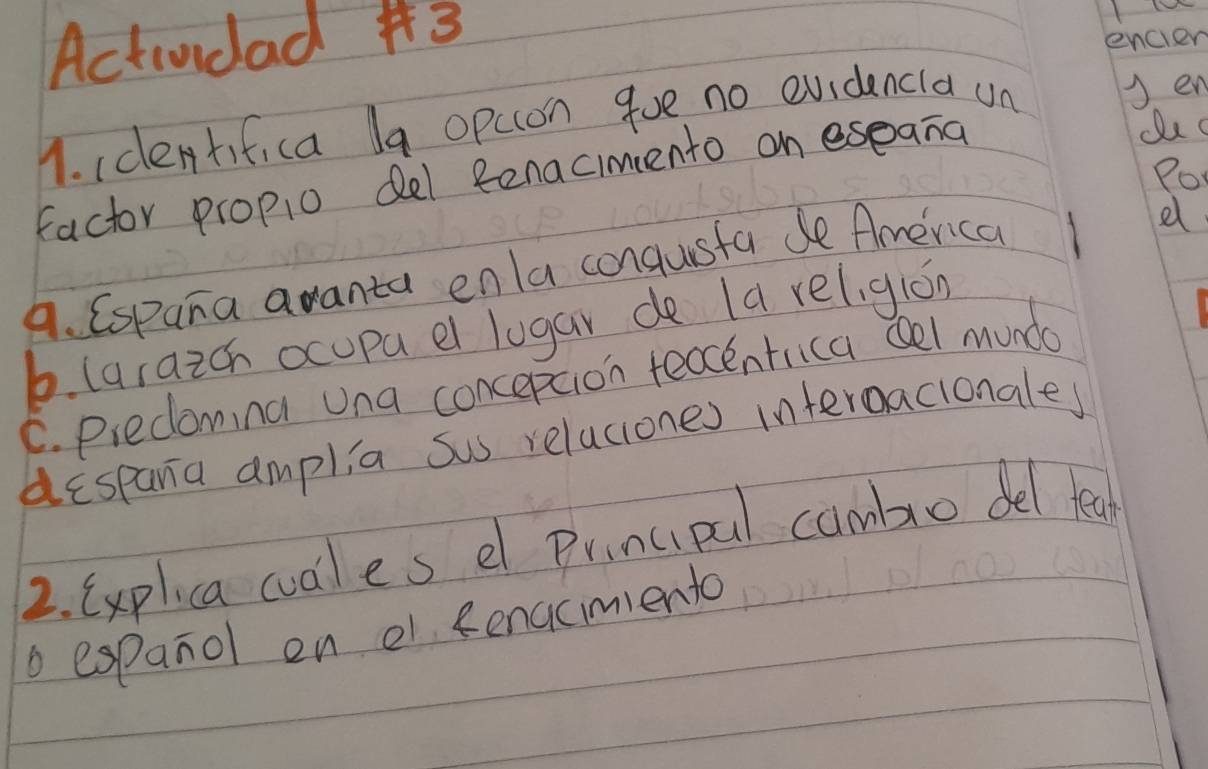 Actividad #3
1. identifica la opción que no evidencia un
factor propio del Renacimiento en españa
a. España avanza en la conquista de América
b. la razón ocupa el lugar de la religión
c. Predomina una concepción teocéntrica del mundo
d España amplía sus relaciones internacionales
2. Explica cuál es el Principal cambio del teatr
o español en el Renacimiento
encien
y en
de c
Por
el